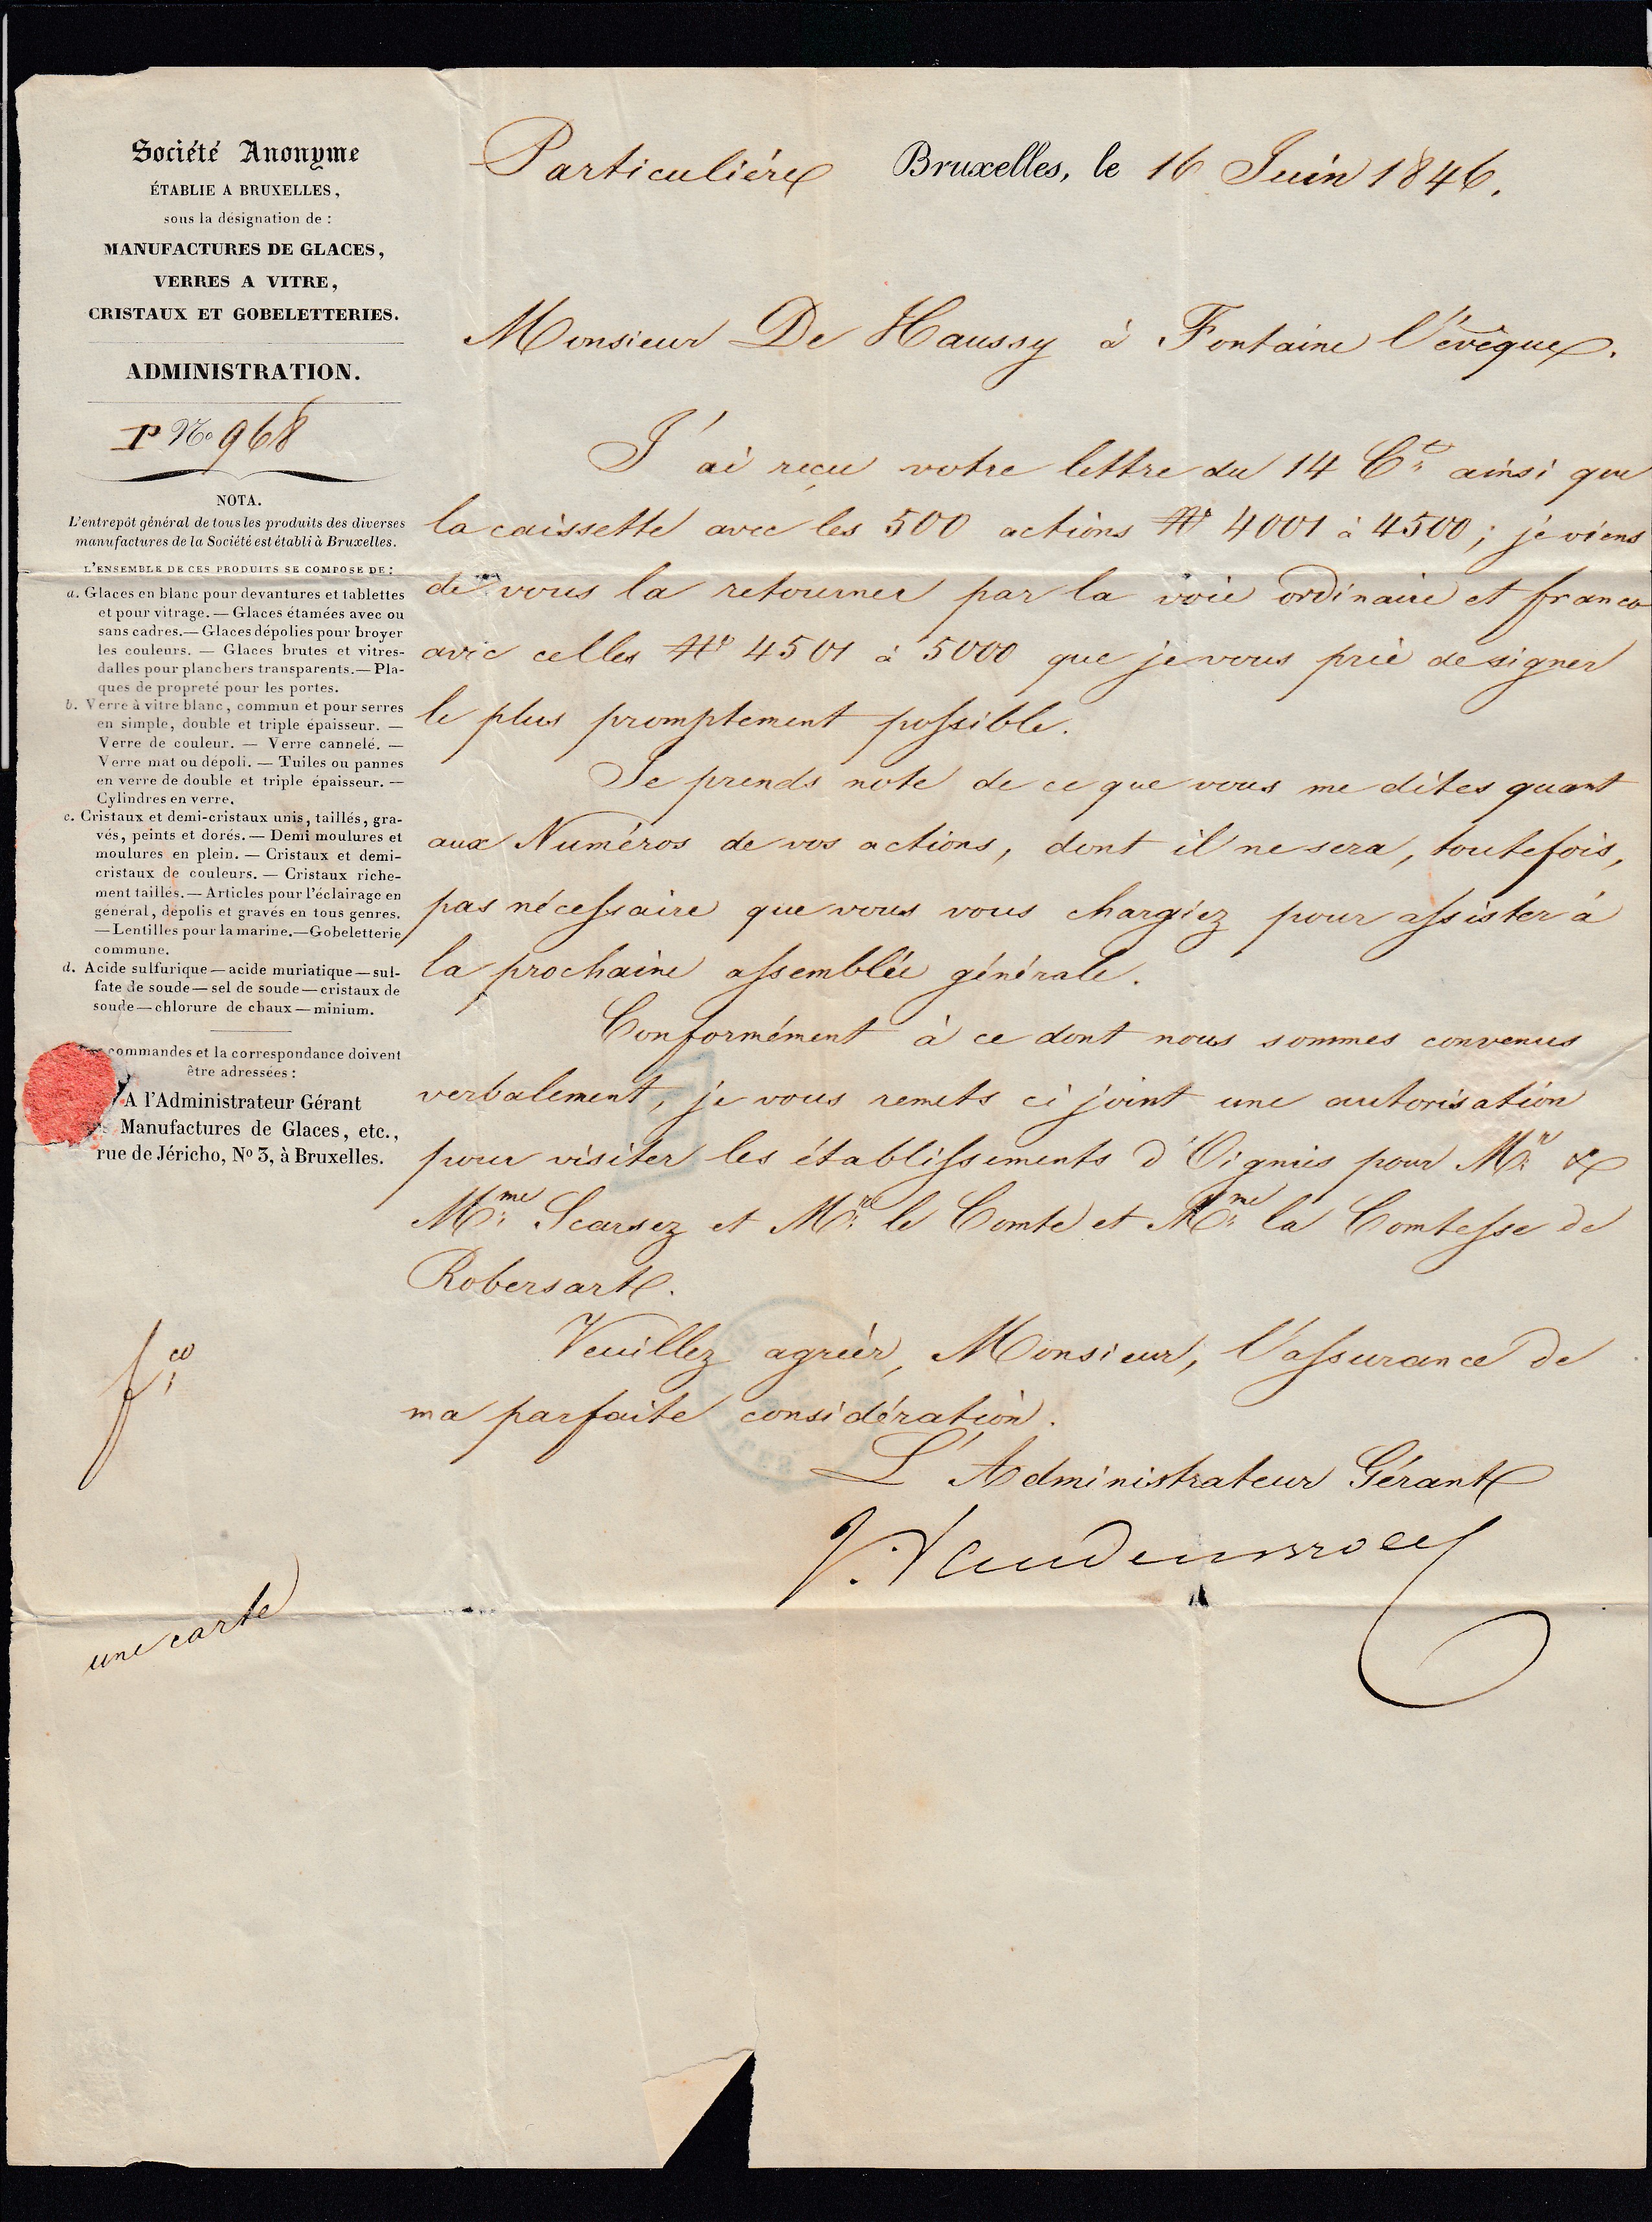 Société Anonyme
ÉTABLIE A BRUXELLES,
sous la désignation de :
MANUFACTURES DE GLACES,
VERRES A VITRE,
CRISTAUX ET GOBELETTERIES.
ADMINISTRATION.
P No 968
NOTA.
L'entrepôt général de tous les produits des diverses
manufactures de la Société est établi à Bruxelles.
L'ENSEMBLE DE CES PRODUITS SE COMPOSE DE :
a. Glaces en blanc pour devantures et tablettes
et pour vitrage. — Glaces étamées avec ou
sans cadres. — Glaces dépolies pour broyer
les couleurs. — Glaces brutes et vitres-
dalles pour planchers transparents. — Pla-
ques de propreté pour les portes.
b. Verre à vitre blanc, commun et pour serres
en simple, double et triple épaisseur. —
Verre de couleur. — Verre cannelé. —
Verre mat ou dépoli. — Tuiles ou pannes
en verre de double et triple épaisseur. —
Cylindres en verre.
c. Cristaux et demi-cristaux unis, taillés, gra-
vés, peints et dorés. — Demi moulures et
moulures en plein. — Cristaux et demi-
cristaux de couleurs. — Cristaux riche-
ment taillés. — Articles pour l'éclairage en
général, dépolis et gravés en tous genres.
— Lentilles pour la marine. — Gobeletterie
commune.
d. Acide sulfurique — acide muriatique — sul-
fate de soude — sel de soude — cristaux de
soude — chlorure de chaux — minium.
commandes et la correspondance doivent
être adressées :
A l'Administrateur Gérant
Manufactures de Glaces, etc.,
rue de Jéricho, No 3, à Bruxelles.
fco
une carte
Particulière Bruxelles, le 16 Juin 1846.
Monsieur De Haussy à Fontaine l'évêque.
J'ai reçu votre lettre du 14 Ct ainsi que
la caissette avec les 500 actions No 4001 à 4500 ; je viens
de vous la retourner par la voie ordinaire et franco
avec celles No 4501 à 5000 que je vous prie de signer
le plus promptement possible.
Je prends note de ce que vous me dites quant
aux Numéros de vos actions, dont il ne sera, toutefois,
pas nécessaire que vous vous chargiez pour assister à
la prochaine assemblée générale.
Conformément à ce dont nous sommes convenus
verbalement, je vous remets ci joint une autorisation
pour visiter les établissements d'Oignies pour Mr &
Mme Scarsez et Mr le Comte et Mme la Comtesse de
Robersart.
Veuillez agréer, Monsieur, l'assurance de
ma parfaite considération.
L'Administrateur Gérant